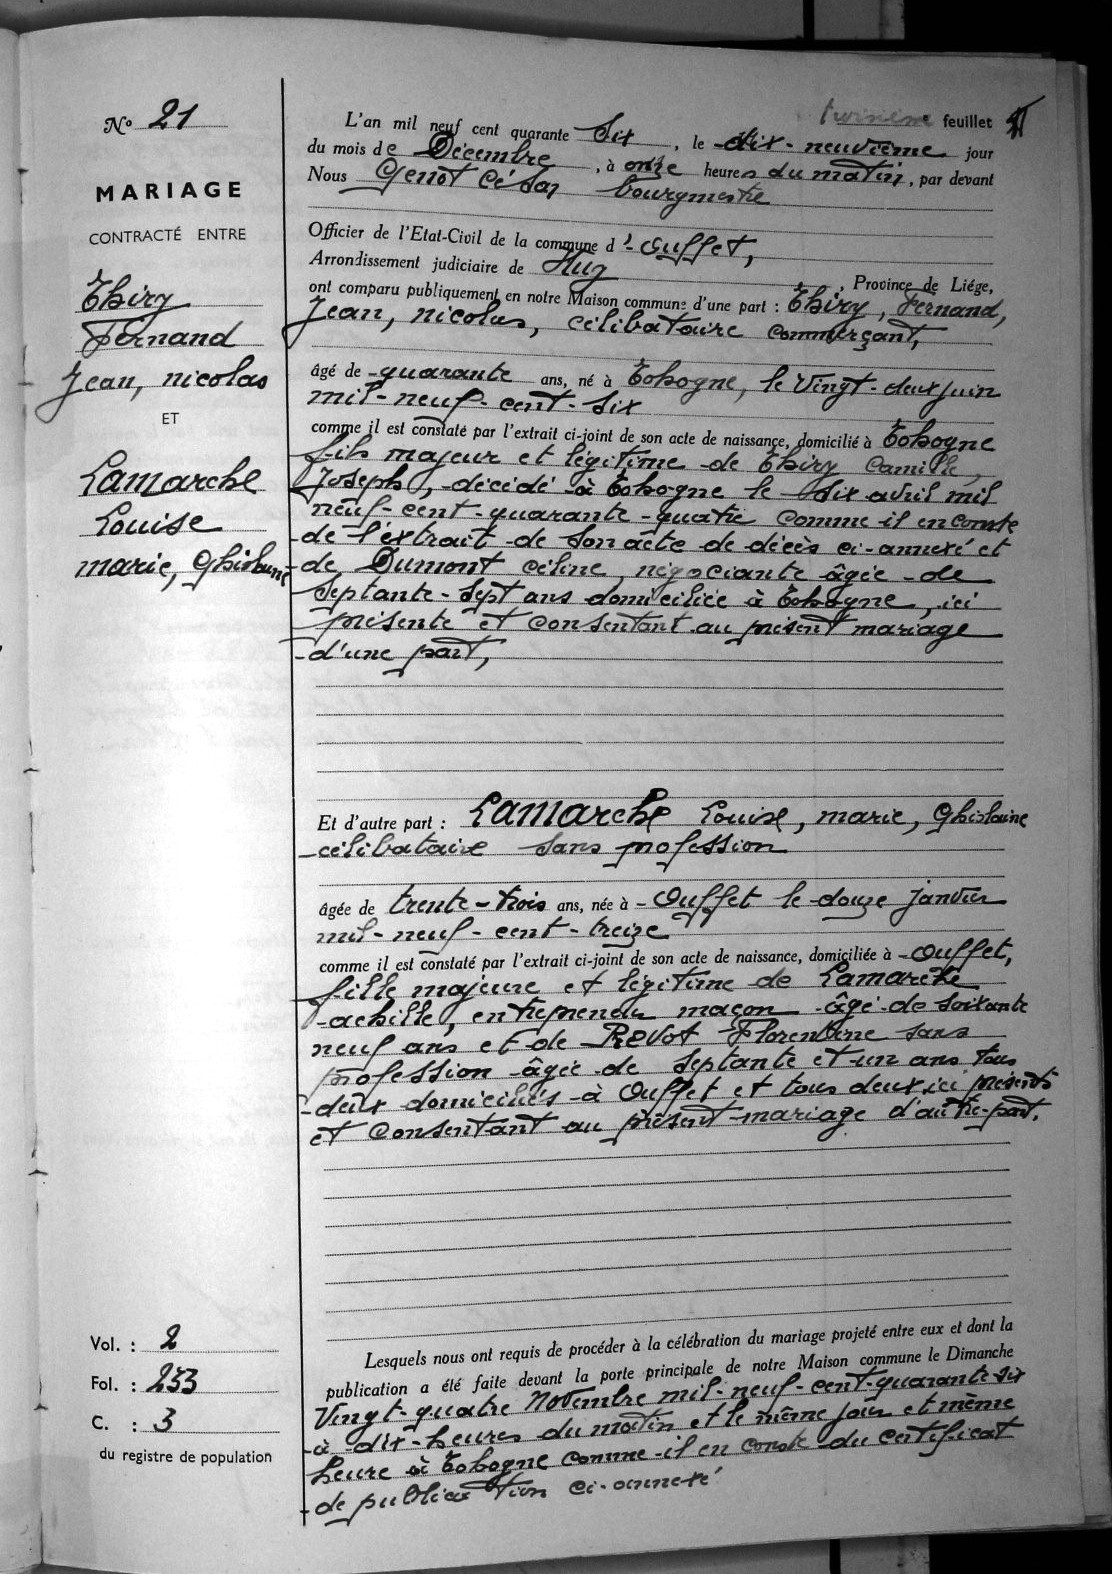 N° 21
MARIAGE
CONTRACTÉ ENTRE
Thiry
Fernand
Jean, nicolas
ET
Lamarche
Louise
marie, Ghislaine
Vol. : 2
Fol. : 233
C. : 3
du registre de population
feuillet
L'an mil neuf cent quarante six, le dix-neuvième jour
du mois de Décembre, à onze heures du matin, par devant
Nous Genot César bourgmestre
Officier de l'Etat-Civil de la commune d'Ouffet,
Arrondissement judiciaire de Huy, Province de Liége,
ont comparu publiquement en notre Maison commune d'une part : Thiry, Fernand,
Jean, nicolas, célibataire commerçant,
âgé de quarante ans, né à Tohogne, le Vingt-deux juin
mil-neuf-cent-six
comme il est constaté par l'extrait ci-joint de son acte de naissance, domicilié à Tohogne
fils majeur et légitime de Thiry Camille,
Joseph, décédé à Tohogne le six avril mil
neuf-cent-quarante-quatre comme il en conste
de l'extrait de son acte de décès ci-annexé et
de Dumont céline, négociante âgée de
septante-sept ans domiciliée à Tohogne, ici
présente et consentant au présent mariage
d'une part,
Et d'autre part : Lamarche Louise, marie, Ghislaine
célibataire sans profession
âgée de trente-trois ans, née à Ouffet le douze janvier
mil-neuf-cent-treize
comme il est constaté par l'extrait ci-joint de son acte de naissance, domiciliée à Ouffet,
fille majeure et légitime de Lamarche
achille, entrepreneur maçon âgé de soixante
neuf ans et de Revot Florentine sans
profession âgée de septante et un ans tous
deux domiciliés à Ouffet et tous deux ici présents
et consentant au présent mariage d'autre-part.
Lesquels nous ont requis de procéder à la célébration du mariage projeté entre eux et dont la
publication a été faite devant la porte principale de notre Maison commune le Dimanche
Vingt-quatre Novembre mil-neuf-cent-quarante-six
à dix-heures du matin et le même jour et même
heure à Tohogne comme il en conste du certificat
de publication ci-annexé